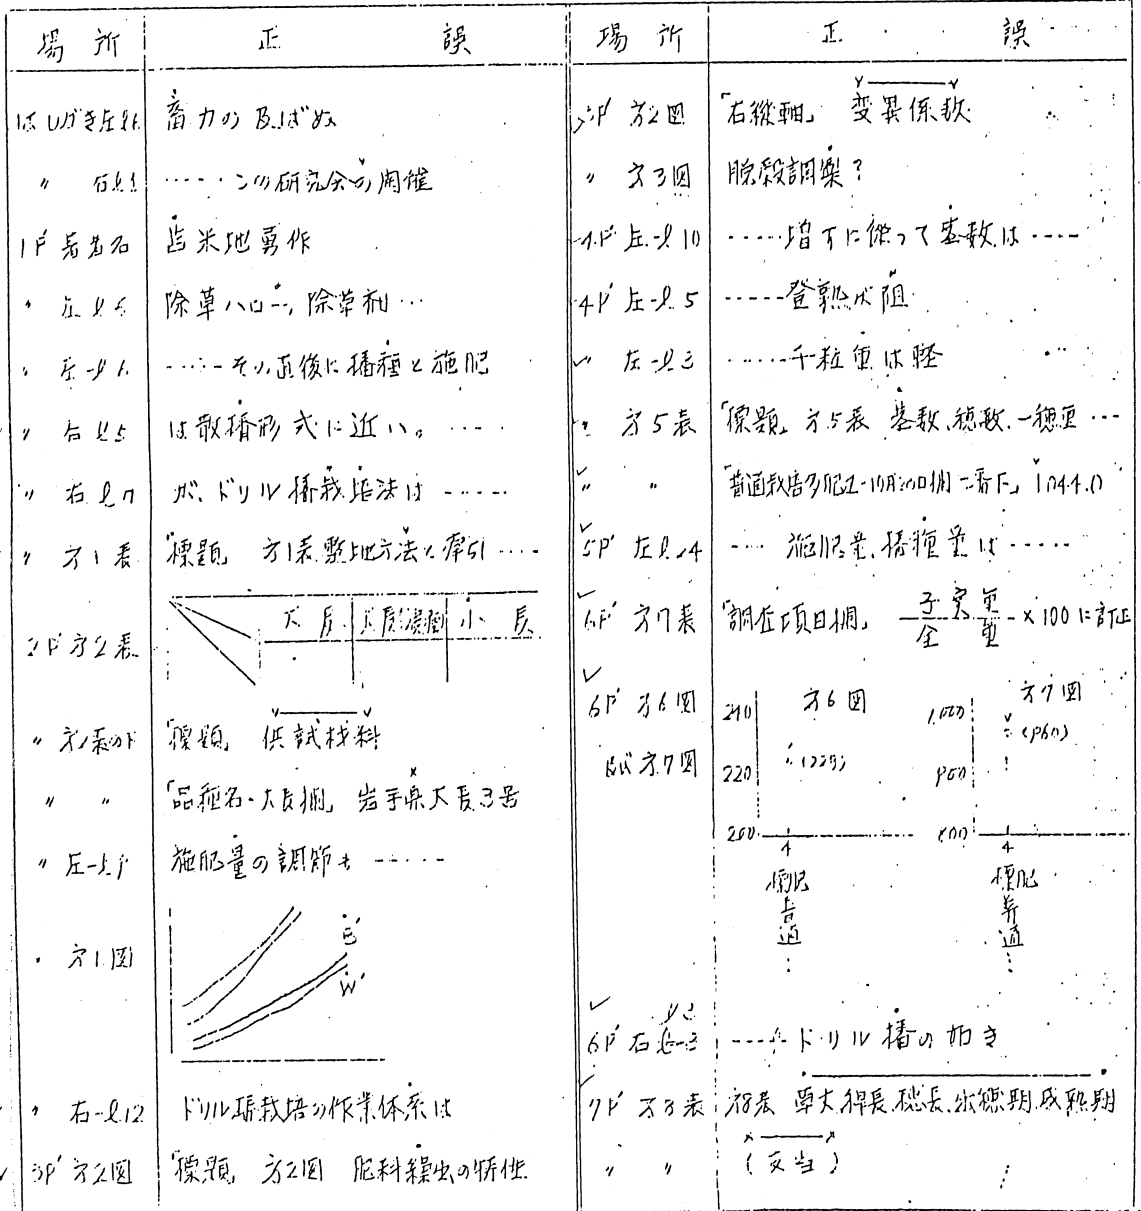 場所 正 誤
はしがき左ℓ6 畜力の及ばぬ
〃 右ℓ1 ‥‥‥この研究会の開催
1P 著者名 苫米地勇作
〃 左ℓ6 除草ハロー、除草剤…
〃 左-ℓ1 ‥‥‥その直後に播種と施肥
〃 右ℓ5 は散播形式に近い。‥‥
〃 右ℓ7 が、ドリル播栽培法は‥‥‥
〃 才1表 「標題」 才1表 整地方法と牽引‥‥
2P 才2表 大 長 小 長
〃 「標題」 供試材料
〃 〃 「品種名・大長欄」 岩手県大長3号
〃 施肥量の調節も‥‥‥
〃 才1図 E' W'
〃 右-ℓ12 ドリル播栽培の作業体系は
3P 才2図 「標題」 才2図 肥料繰出の特性
場所 正 誤
3P 才2図 「右縦軸」 変異係数
〃 才3図 脱穀調製?
4P 左-ℓ10 ‥‥‥増すに従って茎数は‥‥
4P 左-ℓ5 ‥‥‥登熟が阻
〃 左-ℓ3 ‥‥‥千粒重は軽
〃 才5表 「標題」 才5表 茎数、穂数、一穂重…
〃 〃 1044.0
5P 左ℓ14 ‥‥施肥量、播種量は‥‥‥
6P 才7表 「調査項目欄」 子実重/全重 ×100に訂正
6P 才6図 及び才7図
240 才6図
220 (225)
200 4
標肥普通…
1,000 才7図
900 (960)
800 4
標肥普通…
6P 右 ‥‥‥ドリル播の如き
7P 才8表 才8表 草丈、稈長、穂長、出穂期、成熟期
〃 〃 (反当)